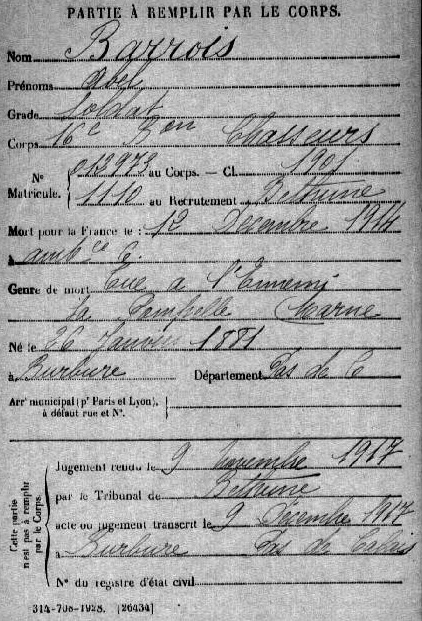 PARTIE À REMPLIR PAR LE CORPS.
Nom Barrois
Prénoms Abel
Grade Soldat
Corps 16e Bon Chasseurs
No Matricule. 012973 au Corps. — Cl. 1901
1110 au Recrutement Béthune
Mort pour la France le : 12 Décembre 1914
à ambce 6.
Genre de mort Tué à l'Ennemi
la Pompelle Marne
Né le 26 Janvier 1881
à Burbure Département Pas de C
Arrt municipal (pr Paris et Lyon),
à défaut rue et No.
Cette partie n'est pas à remplir par le Corps.
Jugement rendu le 9 Novembre 1917
par le Tribunal de Béthune
acte ou jugement transcrit le 9 Décembre 1917
à Burbure Pas de Calais
No du registre d'état civil
314-708-1923. [26434]